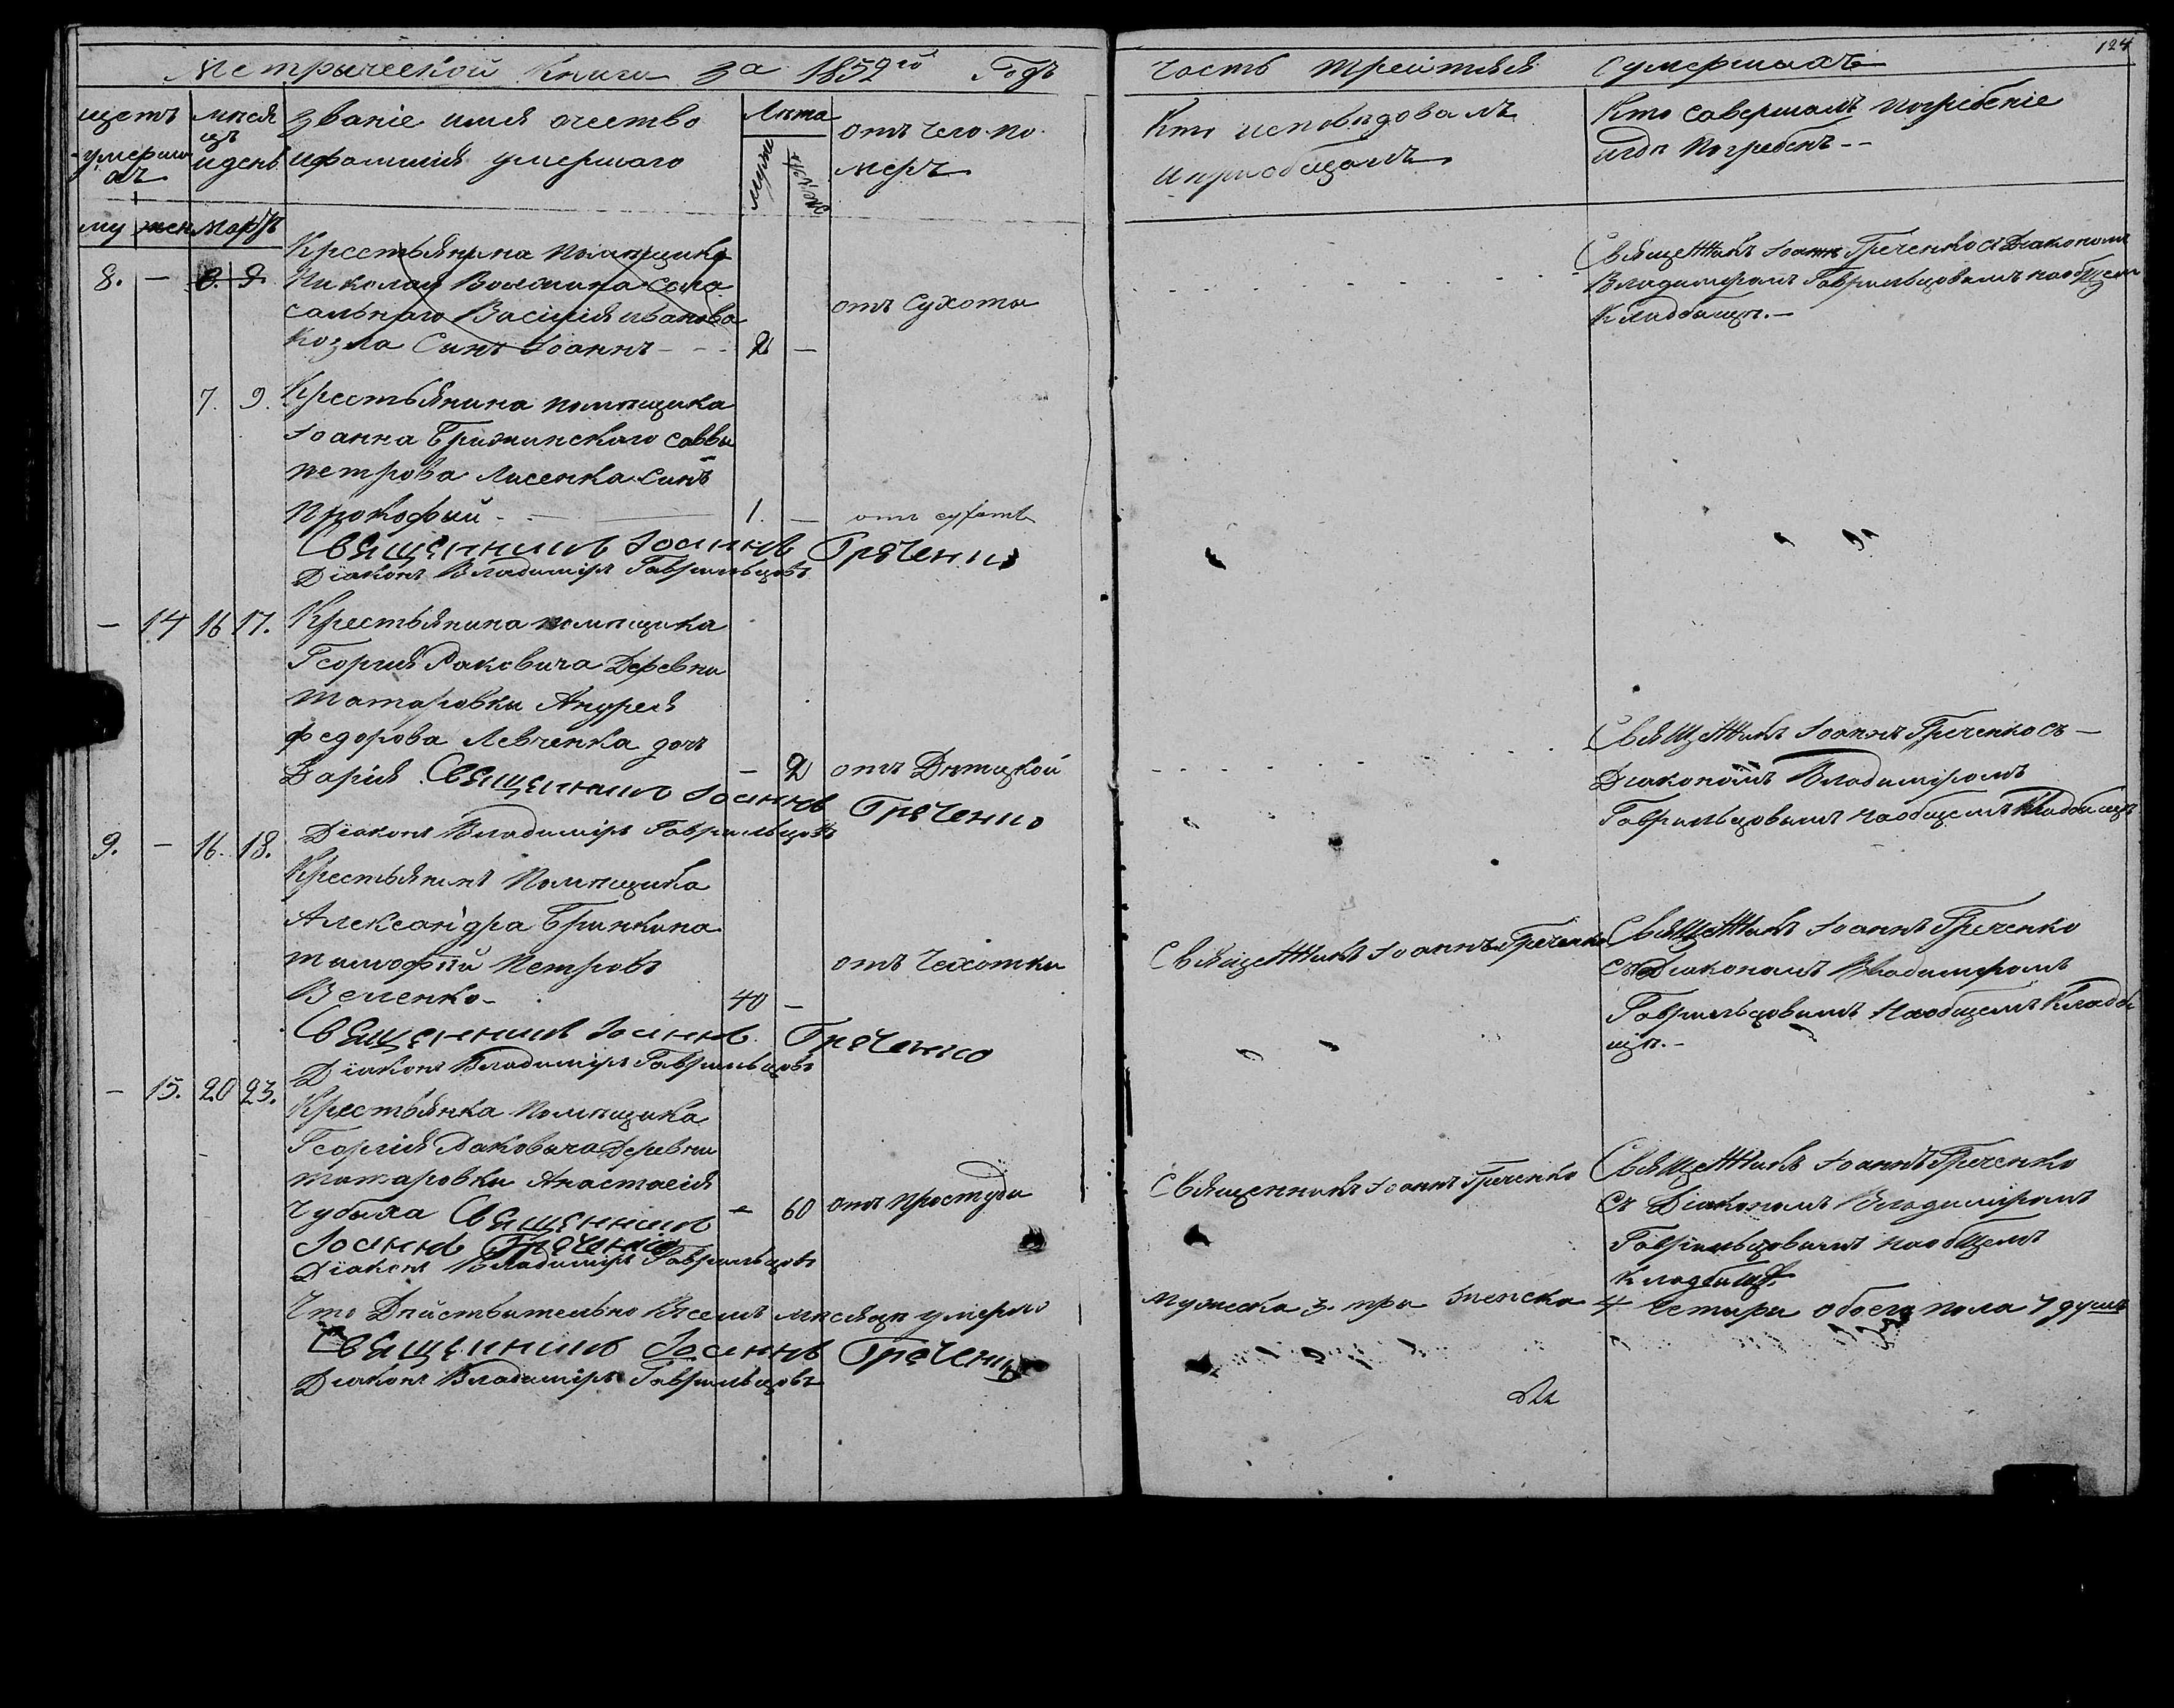 124
Метрической Книги За 1852го Годъ
Часть Третяя О умершихъ
щетъ умершихъ
мѣсяцъ и день
Званіе имя очество
и фамилія умершаго
Лѣта
мужс
женс
отъ чего по
меръ
Кто исповѣдовалъ
и приобщалъ
Кто савершалъ погребеніе
и гдѣ Погребенъ --
му жен Мартъ
8. –
Крестьянина Помѣщика
Николая
сального Василія Иванова
Козла Синъ Іоаннъ - - - 2 –
отъ Сухоты
Священникъ Іоаннъ Греченко съ Діакономъ
Владимиромъ Гаврильцовымъ на общем
Кладбищѣ. –
7. 9. Крестьянина помѣщика
Іоанна Саввы
петрова Лисенка Синъ
Прокофий - 1. – отъ сухоты
Священникъ Іоаннъ Греченко
Діаконъ Владимиръ Гаврильцовъ
– 14 16 17. Крестьянина помѣщика
Георгия Раковича Деревни
татаровки Андрея
федорова Левченка дочь
Дарія – 2 отъ Дѣтицкой
Священникъ Іоаннъ Греченко
Діаконъ Владимиръ Гаврильцовъ
Священникъ Іоаннъ Греченко съ –
Діакономъ Владимиромъ
Гаврильцовымъ на общемъ Кладбищѣ
9. – 16. 18.
Крестьянинъ Помѣщика
Александра Бринкина
тимофій Петровъ
Веленко - 40 –
отъ Чехотки
Священникъ Іоаннъ Греченко
Діаконъ Владимиръ Гаврильцовъ
Священникъ Іоаннъ Греченко
Священникъ Іоаннъ Греченко
съ Діакономъ Владимиромъ
Гаврильцовымъ На общемъ Кладби
щѣ. –
– 15. 20 23.
Крестьянка Помѣщика
Георгія Раковича Деревни
татаровки Анастасія
Чубиха – 60 отъ простуды
Священникъ
Іоаннъ Греченко
Діаконъ Владимиръ Гаврильцовъ
Священникъ Іоаннъ Греченко
Священникъ Іоаннъ Греченко
съ Діакономъ Владимиромъ
Гаврильцовымъ на общемъ
Кладбищѣ.
Что Дѣйствительно Всемъ мѣсяцѣ умерло
мужеска 3. три женска 4 Четыри обоего пола 7 душъ
Священникъ Іоаннъ Греченко
Діаконъ Владимиръ Гаврильцовъ